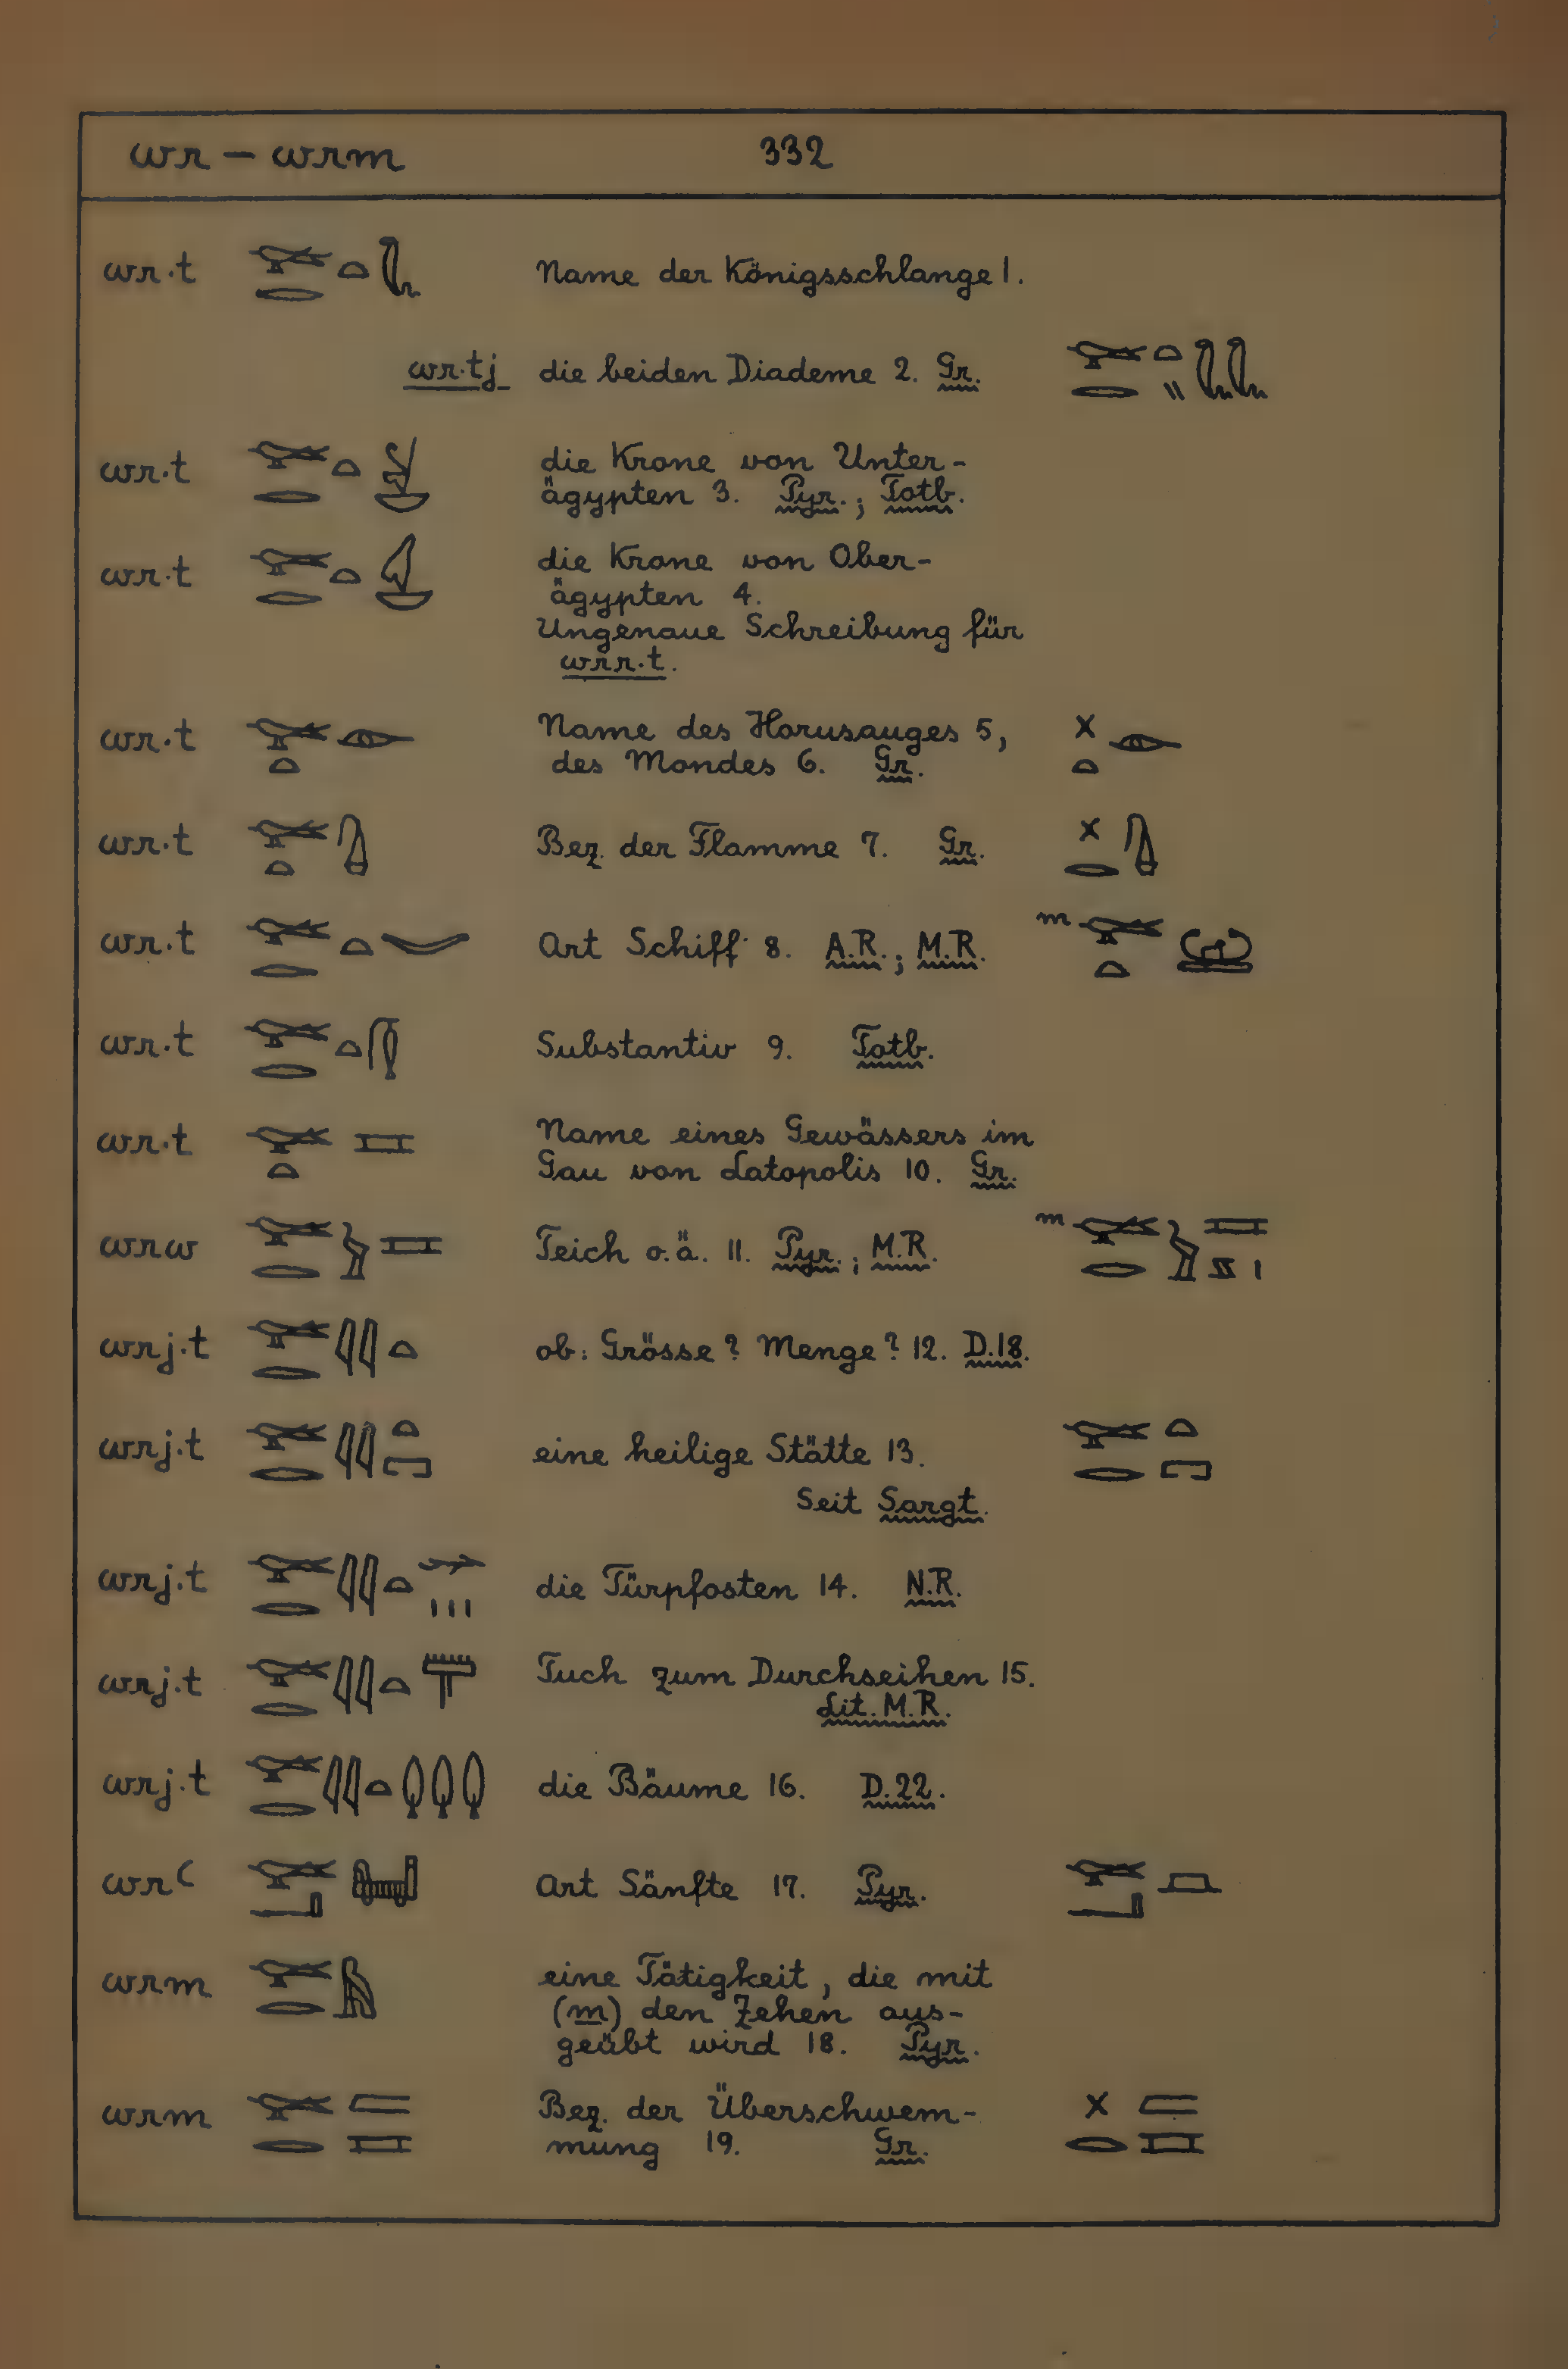 wr – wrm 332
wr·t Name der Königsschlange 1.
wr·tj die beiden Diademe 2. Gr.
wr·t die Krone von Unter-
ägypten 3. Pyr.; Totb.
wr·t die Krone von Ober-
ägypten 4.
Ungenaue Schreibung für
wrr·t.
wr·t Name des Horusauges 5,
des Mondes 6. Gr.
wr·t Bez. der Flamme 7. Gr.
wr·t Art Schiff 8. A.R.; M.R. m
wr·t Substantiv 9. Totb.
wr·t Name eines Gewässers im
Gau von Latopolis 10. Gr.
wrw Teich o.ä. 11. Pyr.; M.R. m
wrj·t ob: Grösse? Menge? 12. D.18.
wrj·t eine heilige Stätte 13.
Seit Sargt.
wrj·t die Türpfosten 14. N.R.
wrj·t Tuch zum Durchseihen 15.
Lit. M.R.
wrj·t die Bäume 16. D.22.
wrꜥ Art Sänfte 17. Pyr.
wrm eine Tätigkeit, die mit
(m) den Zehen aus-
geübt wird 18. Pyr.
wrm Bez. der Überschwem-
mung 19. Gr.